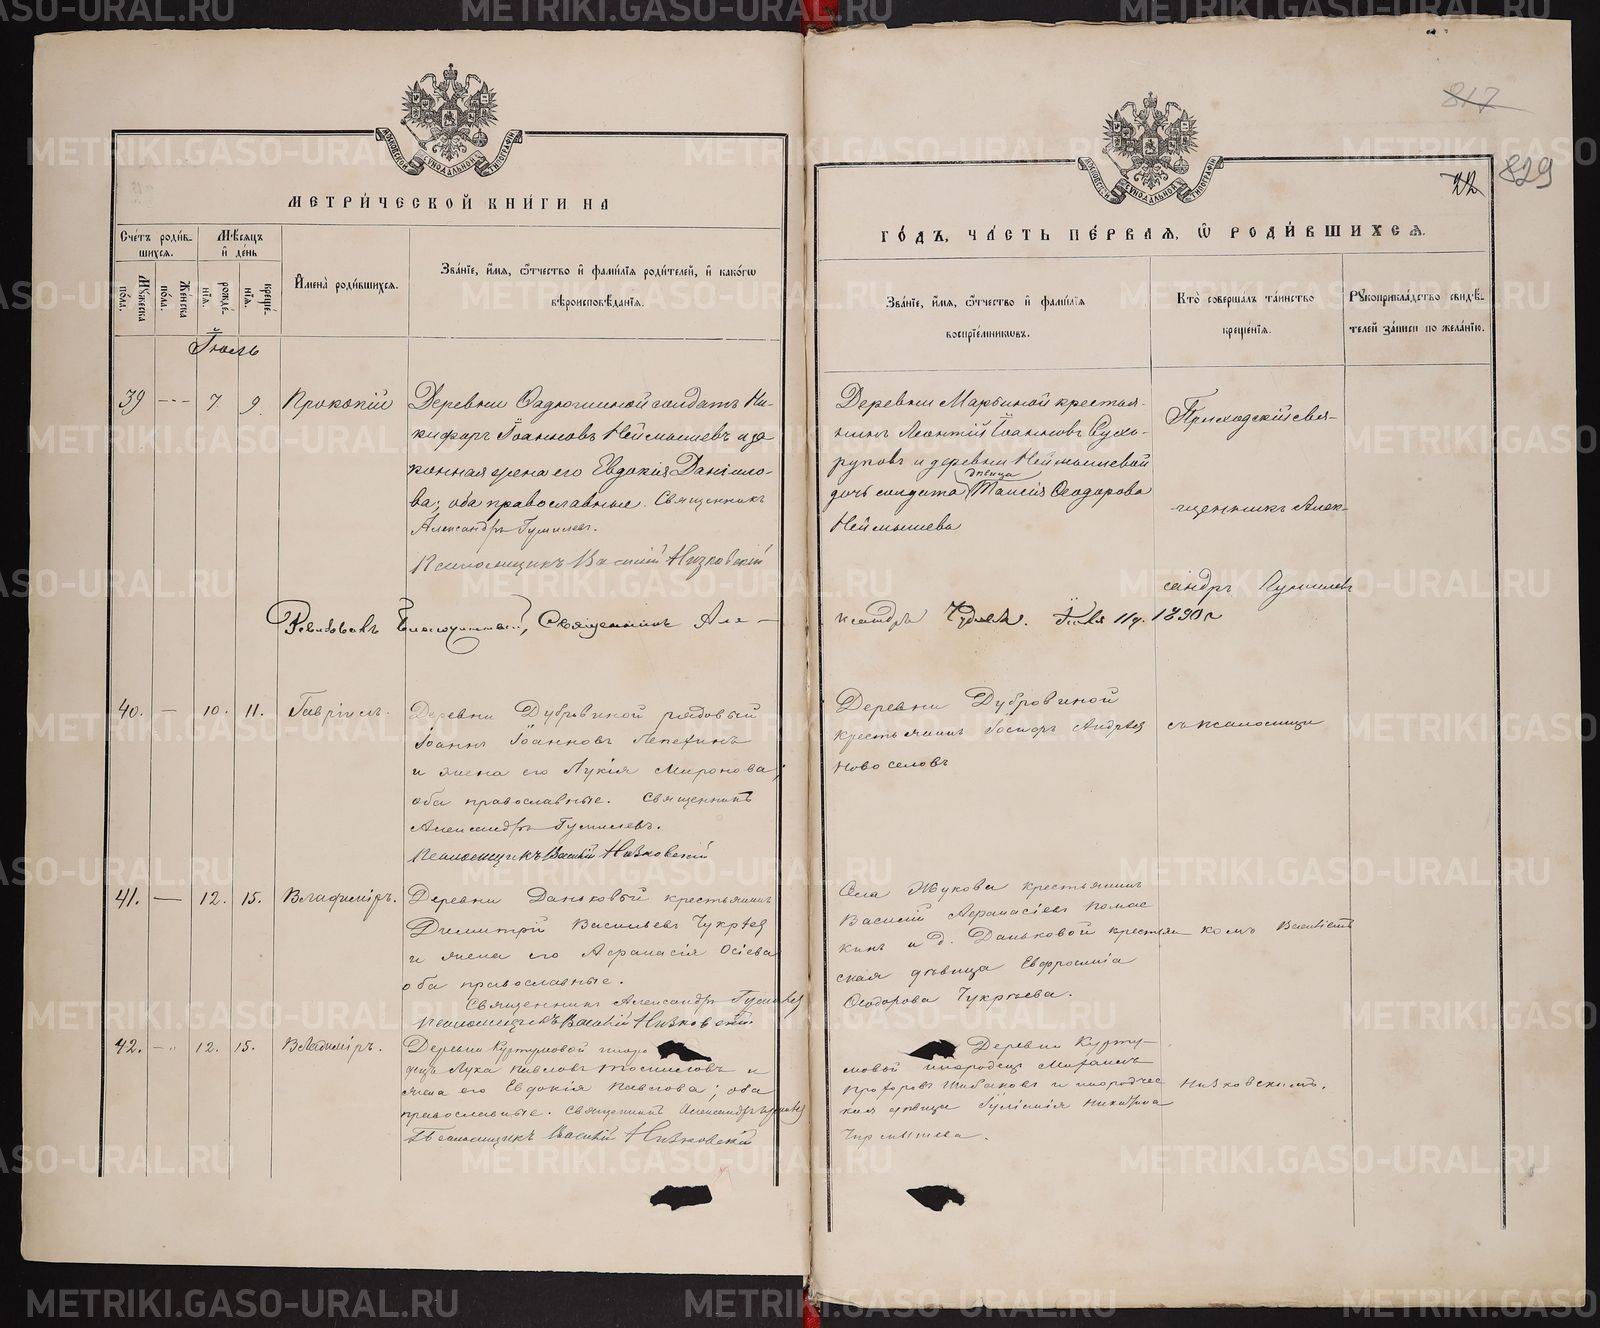 МЕТРИ́ЧЕСКОЙ КНИ́ГИ НА
Сче́тъ роди́в-
шихся.
Мѣ́сяцъ
и҆ де́нь
Му́жеска
по́ла.
Же́нска
по́ла.
рожде́-
нїѧ.
креще́-
нїѧ.
И҆мена̀ роди́вшихсѧ.
Зва́нїе, и҆́мѧ, ѻ҆́тчество и҆ фами́лїѧ роди́телей, и҆ како́гѡ
вѣроисповѣ́данїѧ.
Іюль
39 --- 7 9. Прокопій
Деревни солдатъ Ни-
кифоръ Іоанновъ Неймышевъ и за
конная жена его Евдокія Данило-
ва; оба православные. Священникъ
Александръ Гумилевъ.
Псаломщикъ Василій Низковскій
Благочинный, Священникъ Але-
40. — 10. 11. Гавріилъ.
Деревни Дубровиной рядовый
Іоаннъ Іоанновъ Лепехинъ
и жена его Лукія Миронова;
оба православные. Священникъ
Александръ Гумилевъ.
Псаломщикъ Василій Низковскій
41. — 12. 15. Владиміръ.
Деревни Даньковой крестьянинъ
Димитрій Васильевъ Чукрѣев
и жена его Афанасія Осіева
оба православные.
Священникъ Александръ Гумилев
Псаломщикъ Василій Низковскій.
42. — 12. 15. Владиміръ.
Деревни Куртумовой иноро
децъ Лука Павловъ и
жена его Евдокія Павлова; оба
православные. Священникъ Александръ Гумилев
Псаломщикъ Василій Низковскій
817
22
829
ГО́ДЪ, ЧА́СТЬ ПЕ́РВАѦ, Ѽ РОДИ́ВШИХСѦ.
Зва́нїе, и҆́мѧ, ѻ҆́тчество и҆ фами́лїѧ
воспрїе́мниковъ.
Кто̀ соверша́лъ та́инство
креще́нїѧ.
Рꙋкоприкла́дство свидѣ́-
телей за́писи по жела́нїю.
Деревни Марьиной крестья-
нинъ Леонтій Іоанновъ Сухо-
руковъ и деревни Неймышевой
дочь солдата девица Таисія Ѳеодорова
Неймышева
Приходскій свя-
щенникъ Алек-
сандръ Гумилевъ
ксандръ 11 д. 1890 г
Деревни Дубровиной
крестьянинъ Андреев
Новоселовъ
съ псаломщи
Села Жукова крестьянинъ
Василій Афанасіевъ Помас
кинъ и д. Даньковой крестьян
ская дѣвица Евфросинія
Ѳеодорова Чукрѣева.
комъ Василіемъ
Деревни Курту-
мовой инородецъ Михаилъ
Прохоровъ Шибаковъ и инородчес
кая дѣвица Іуліанія Никитина
Чермышева.
Низковскимъ.